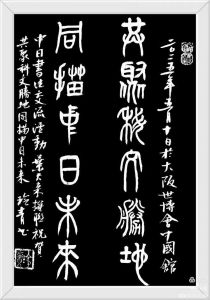 二〇二五年五月十日於大阪世博會中國館
共聚科文勝地
同描中日未來
中日書法交流活動葉天來撰聯祝賀
共聚科文勝地同描中日未來